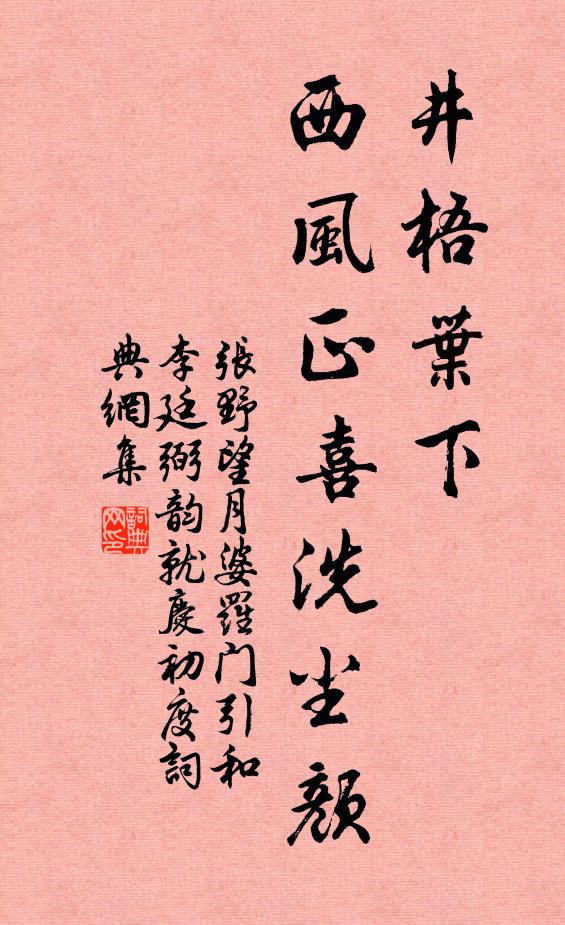 井梧葉下
西風正喜洗尘顏
張野望月婆羅门引和
李廷弼韵就慶初度詞
典網集
詞典网印